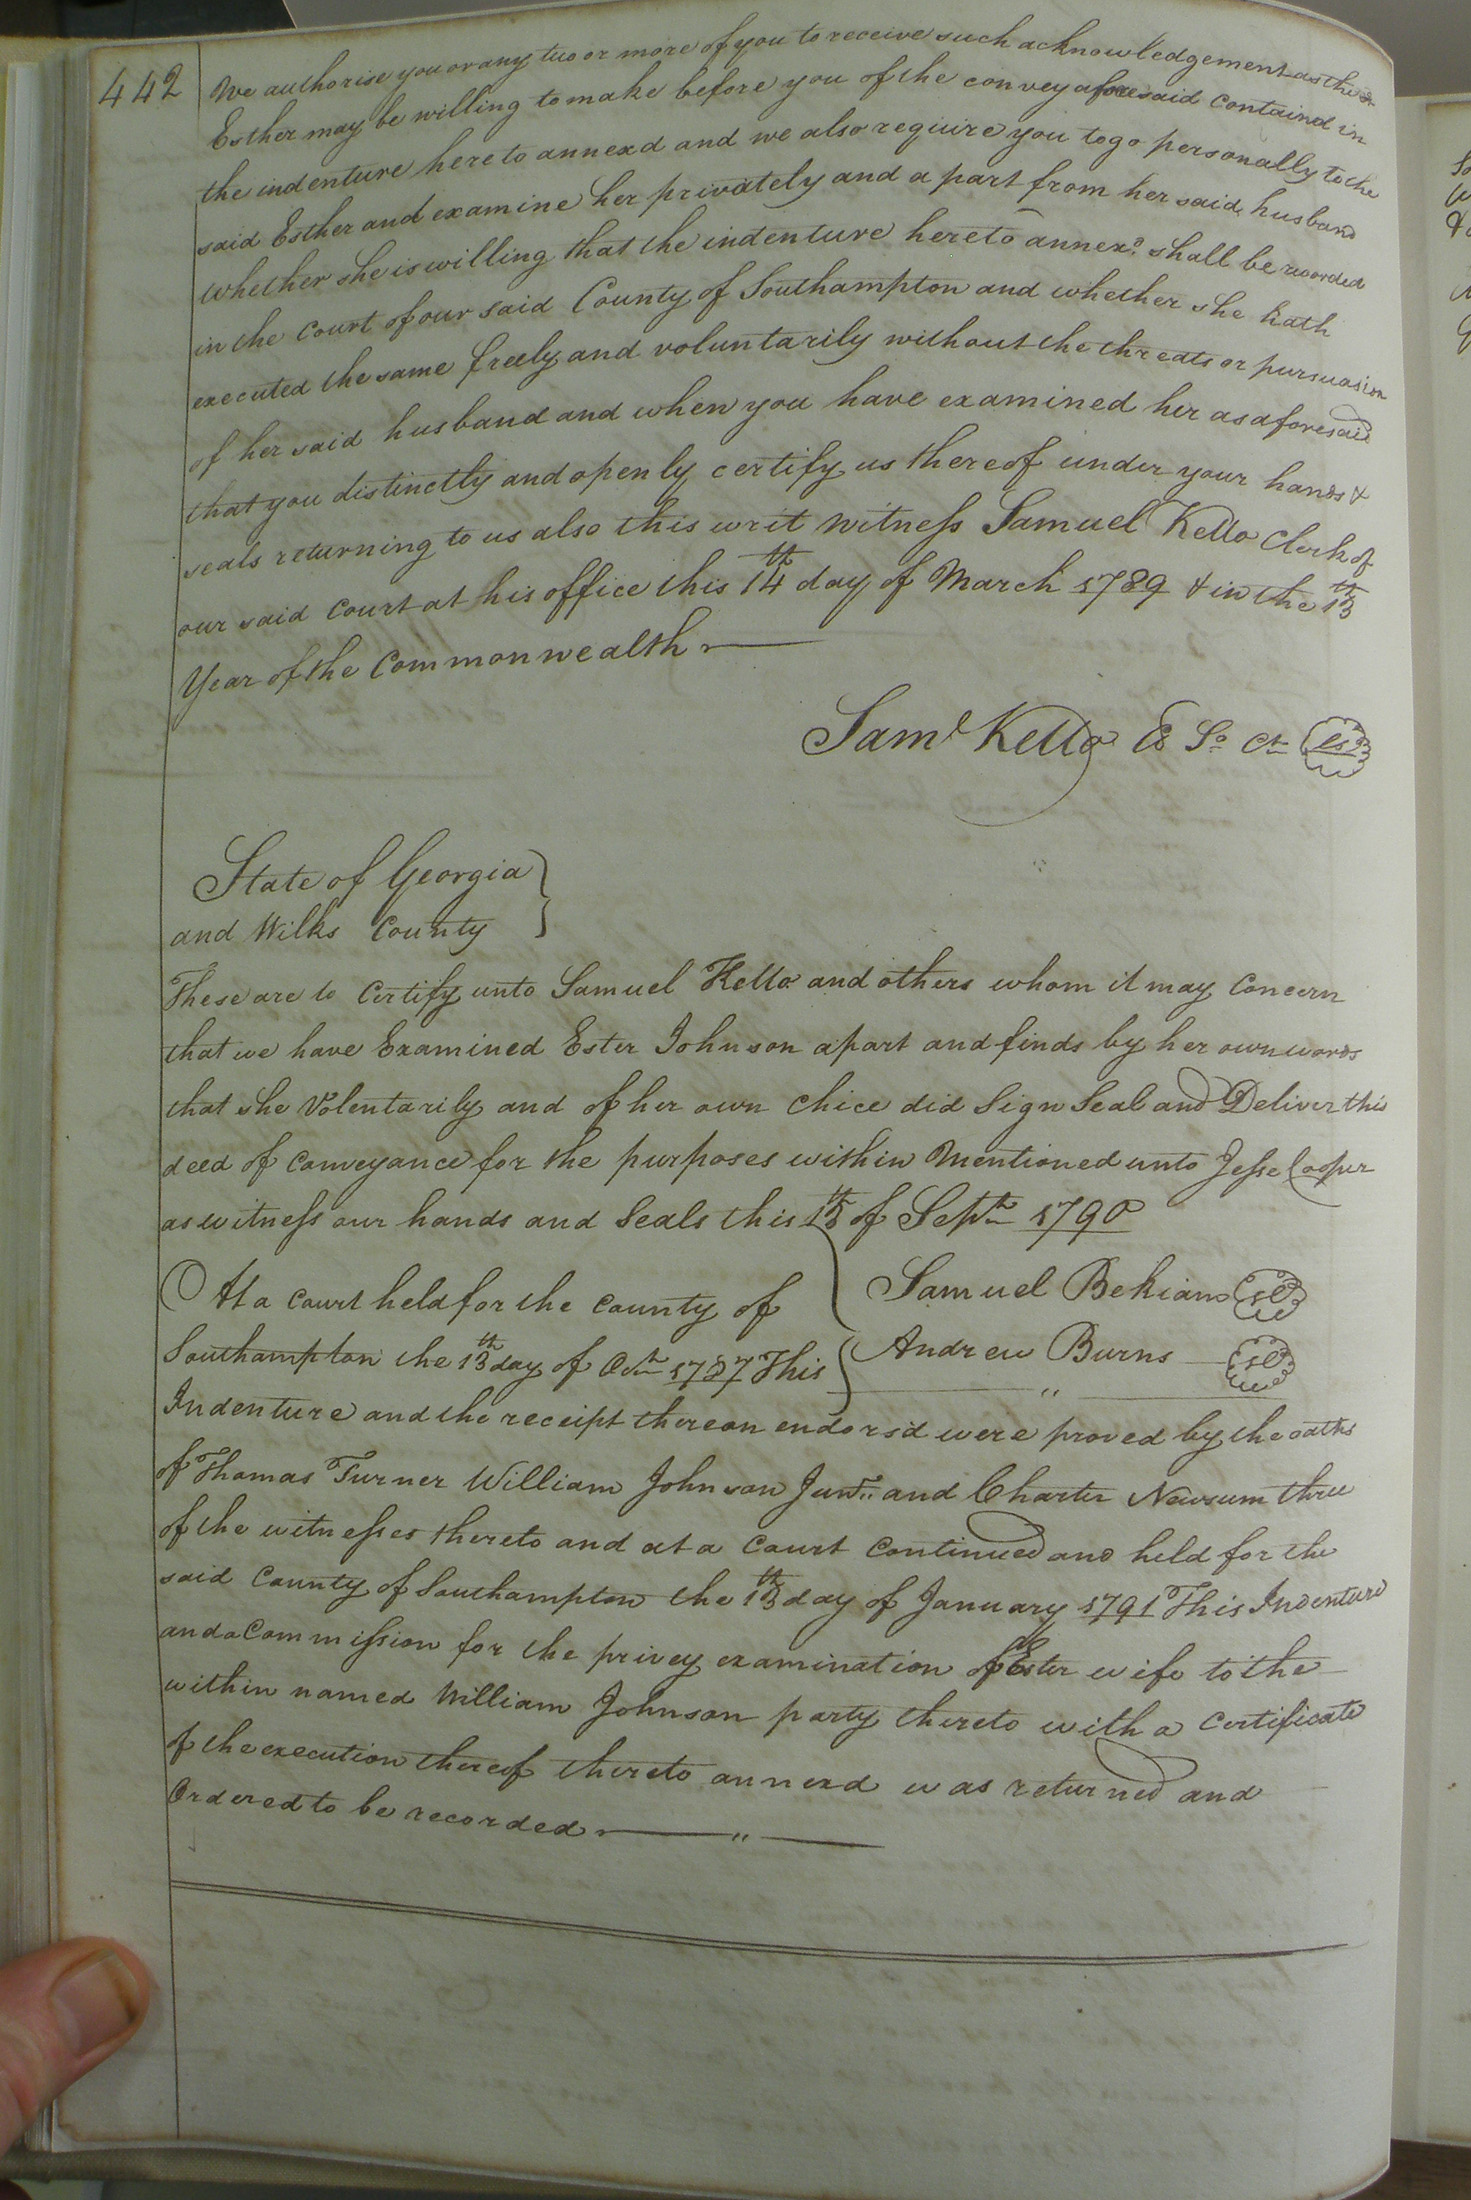 442
We authorise you or any two or more of you to receive such acknowledgement as the sd
Esther may be willing to make before you of the convey aforesaid containd in
the indenture hereto annexd and we also require you to go personally to the
said Esther and examine her privately and a part from her said husband
whether she is willing that the indenture hereto annexd. shall be recorded
in the Court of our said County of Southampton and whether she hath
executed the same freely and voluntarily without the threats or pursuasion
of her said husband and when you have examined her as aforesaid
that you distinctly and openly certify us thereof under your hands &
seals returning to us also this writ witness Samuel Kello Clerk of
our said Court at his office this 14th day of March 1789 & in the 13th
Year of the Commonwealth
Saml Kello So Ct LS
State of Georgia
and Wilks County
These are to Certify unto Samuel Kello and others whom it may Concern
that we have Examined Ester Johnson apart and finds by her own words
that she Volentarily and of her own Chice did Sign Seal and Deliver this
deed of Conveyance for the purposes within Mentioned unto Jesse Cooper
as witness our hands and Seals this 15th of Septr 1790
At a Court held for the County of
Samuel Bekiam
Southampton the 13th day of Octr 1787 This
Andrew Burns
Indenture and the receipt thereon endorsd were proved by the oaths
of Thomas Turner William Johnson Junr. and Charter Newsum three
of the witnesses thereto and at a Court Continued and held for the
said County of Southampton the 13th day of January 1791 This Indenture
and a Commission for the privey examination of Ester wife to the
within named William Johnson party thereto with a Certificate
of the execution thereof thereto annexd was returned and
Ordered to be recorded